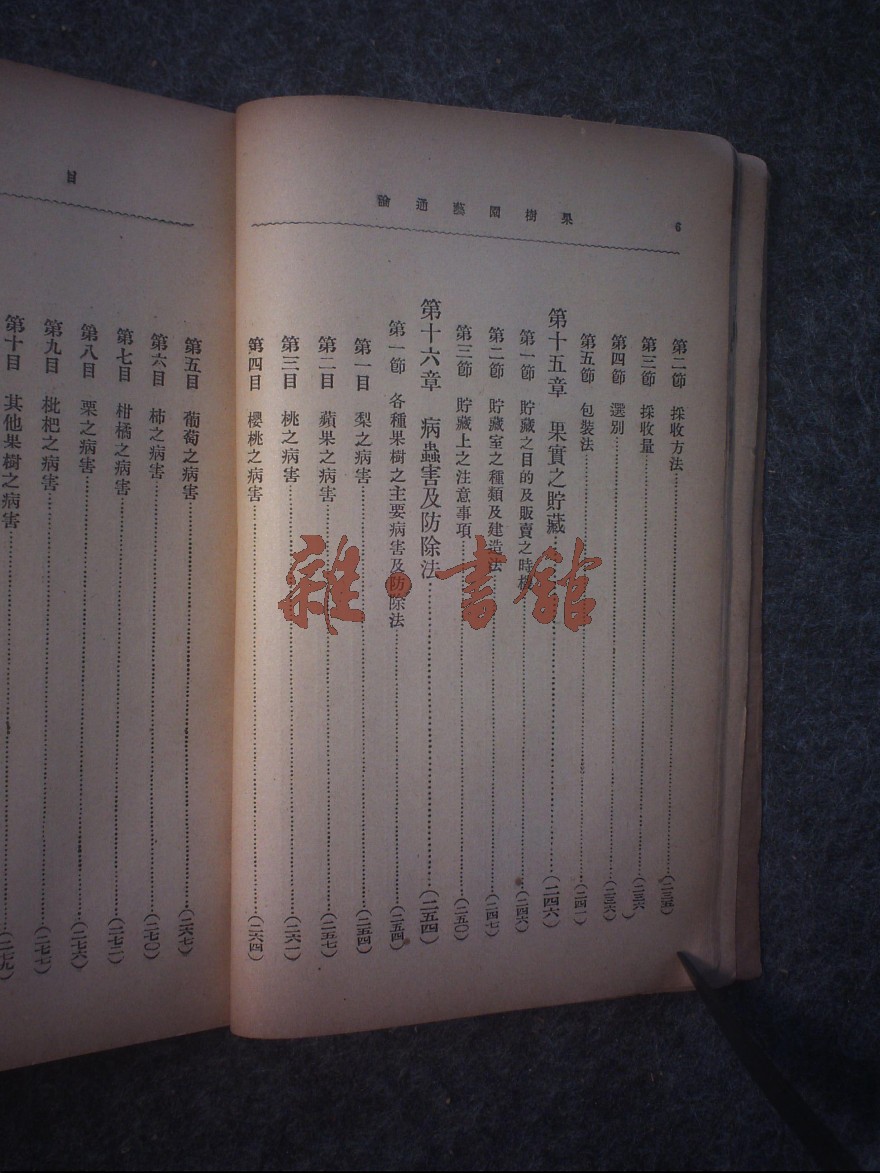 果樹園藝通論
6
第二節 採收方法……(二三五)
第三節 採收量……(二三六)
第四節 選別……(二三六)
第五節 包裝法……(二四一)
第十五章 果實之貯藏……(二四六)
第一節 貯藏之目的及販賣之時機……(二四六)
第二節 貯藏室之種類及建造法……(二四七)
第三節 貯藏上之注意事項……(二五〇)
第十六章 病蟲害及防除法……(二五四)
第一節 各種果樹之主要病害及防除法……(二五四)
第一目 梨之病害……(二五四)
第二目 蘋果之病害……(二五七)
第三目 桃之病害……(二六一)
第四目 櫻桃之病害……(二六四)
目
第五目 葡萄之病害……(二六七)
第六目 柿之病害……(二七〇)
第七目 柑橘之病害……(二七二)
第八目 栗之病害……(二七六)
第九目 枇杷之病害……(二七七)
第十目 其他果樹之病害……(二七九)
雜·書館